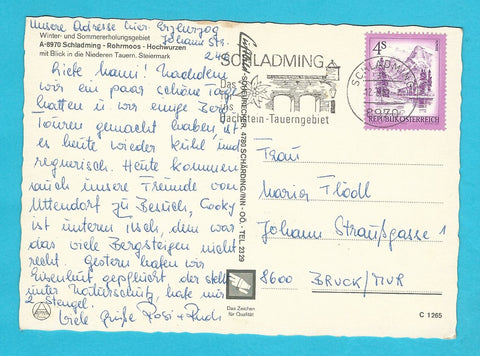 Unsere Adresse hier: Erzherzog
Johann Str.
248
Winter- und Sommererholungsgebiet
A-8970 Schladming - Rohrmoos - Hochwurzen
mit Blick in die Niederen Tauern, Steiermark
Liebe Hanni! Nachdem
wir ein paar schöne Tage
hatten u wir einige Berg
Touren gemacht haben, ist
es heute wieder kühl und
regnerisch. Heute kommen
auch unsere Freunde von
Uttendorf zu Besuch, Cooky
ist unterm Tisch, ihm war
das viele Bergsteigen nicht
recht. Gestern haben wir
Eisenhut gepflückt, der steht
unter Naturschutz, habe nur
2 Stengel.
Viele Grüße Rosi + Rudi
SCHEURECKER, 4780 SCHÄRDING/INN - OÖ. - TEL. 2329
SCHLADMING
Das
Dachstein-Tauerngebiet
SCHLADMING
8970
4 S
REPUBLIK ÖSTERREICH
Frau
Maria Flödl
Johann Straußgasse 1
8600 BRUCK/MUR
Das Zeichen
für Qualität
C 1265